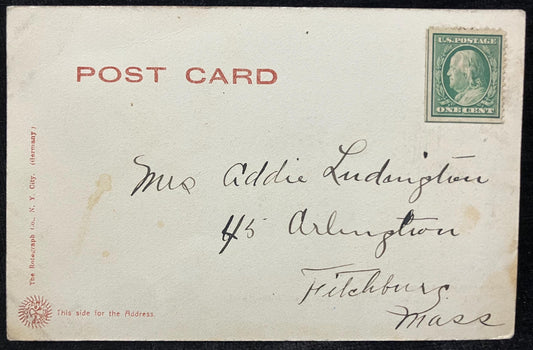 U.S. POSTAGE
ONE CENT
POST CARD
Mrs Addie Ludington
45 Arlington
Fitchburg
Mass
The Rotograph Co., N. Y. City. (Germany.)
This side for the Address.